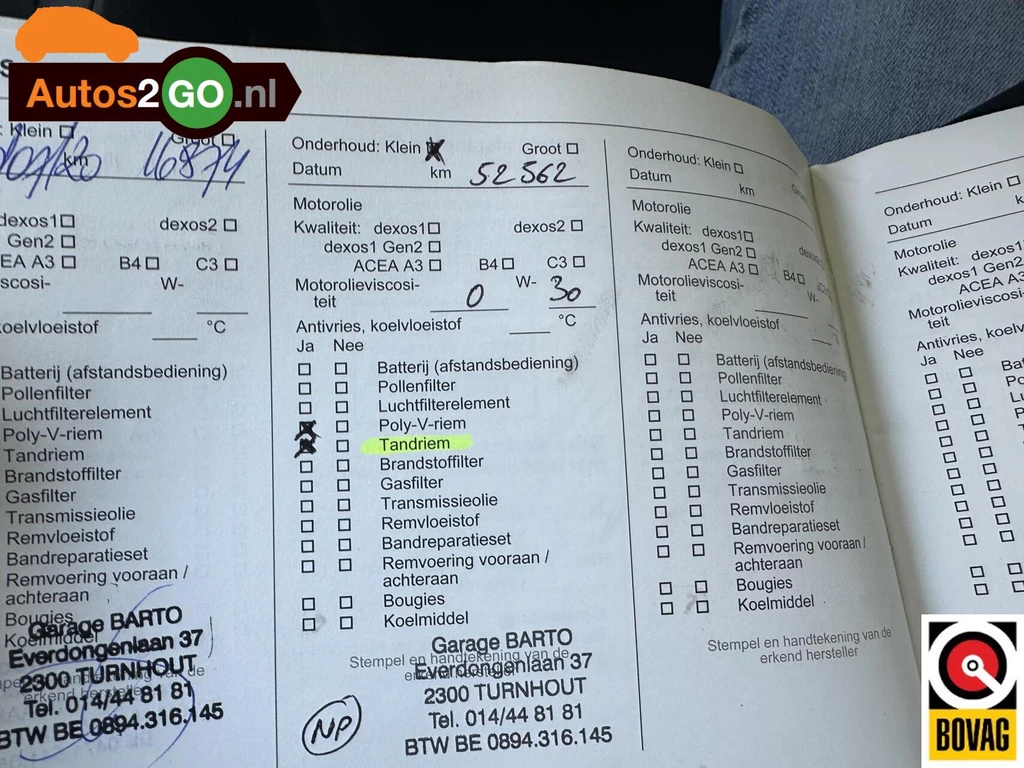 Autos2GO.nl
Klein
Groot
km 16874
dexos1 dexos2
Gen2
A3 B4 C3
W-
°C
Batterij (afstandsbediening)
Pollenfilter
Luchtfilterelement
Poly-V-riem
Tandriem
Brandstoffilter
Gasfilter
Transmissieolie
Remvloeistof
Bandreparatieset
Remvoering vooraan /
achteraan
Bougies
Koelmiddel
Garage BARTO
Everdongenlaan 37
2300 TURNHOUT
Tel. 014/44 81 81
BTW BE 0894.316.145
Onderhoud: Klein Groot
Datum km 52562
Motorolie
Kwaliteit: dexos1 dexos2
dexos1 Gen2
ACEA A3 B4 C3
Motorolieviscosi-
teit 0 W- 30
Antivries, koelvloeistof °C
Ja Nee
Batterij (afstandsbediening)
Pollenfilter
Luchtfilterelement
Poly-V-riem
Tandriem
Brandstoffilter
Gasfilter
Transmissieolie
Remvloeistof
Bandreparatieset
Remvoering vooraan /
achteraan
Bougies
Koelmiddel
Stempel en handtekening van de
erkend hersteller
Garage BARTO
Everdongenlaan 37
2300 TURNHOUT
Tel. 014/44 81 81
BTW BE 0894.316.145
NP
Onderhoud: Klein
Datum km
Motorolie
Kwaliteit: dexos1
dexos1 Gen2
ACEA A3 B4
Motorolieviscosi-
teit W-
Antivries, koelvloeistof
Ja Nee
Batterij (afstandsbediening
Pollenfilter
Luchtfilterelement
Poly-V-riem
Tandriem
Brandstoffilter
Gasfilter
Transmissieolie
Remvloeistof
Bandreparatieset
Remvoering vooraan /
achteraan
Bougies
Koelmiddel
Stempel en handtekening van de
erkend hersteller
Onderhoud: Klein
Datum
Motorolie
Kwaliteit: dexos1
dexos1 Gen2
ACEA A3
Motorolieviscosi-
teit
Antivries,
Ja Nee
BOVAG